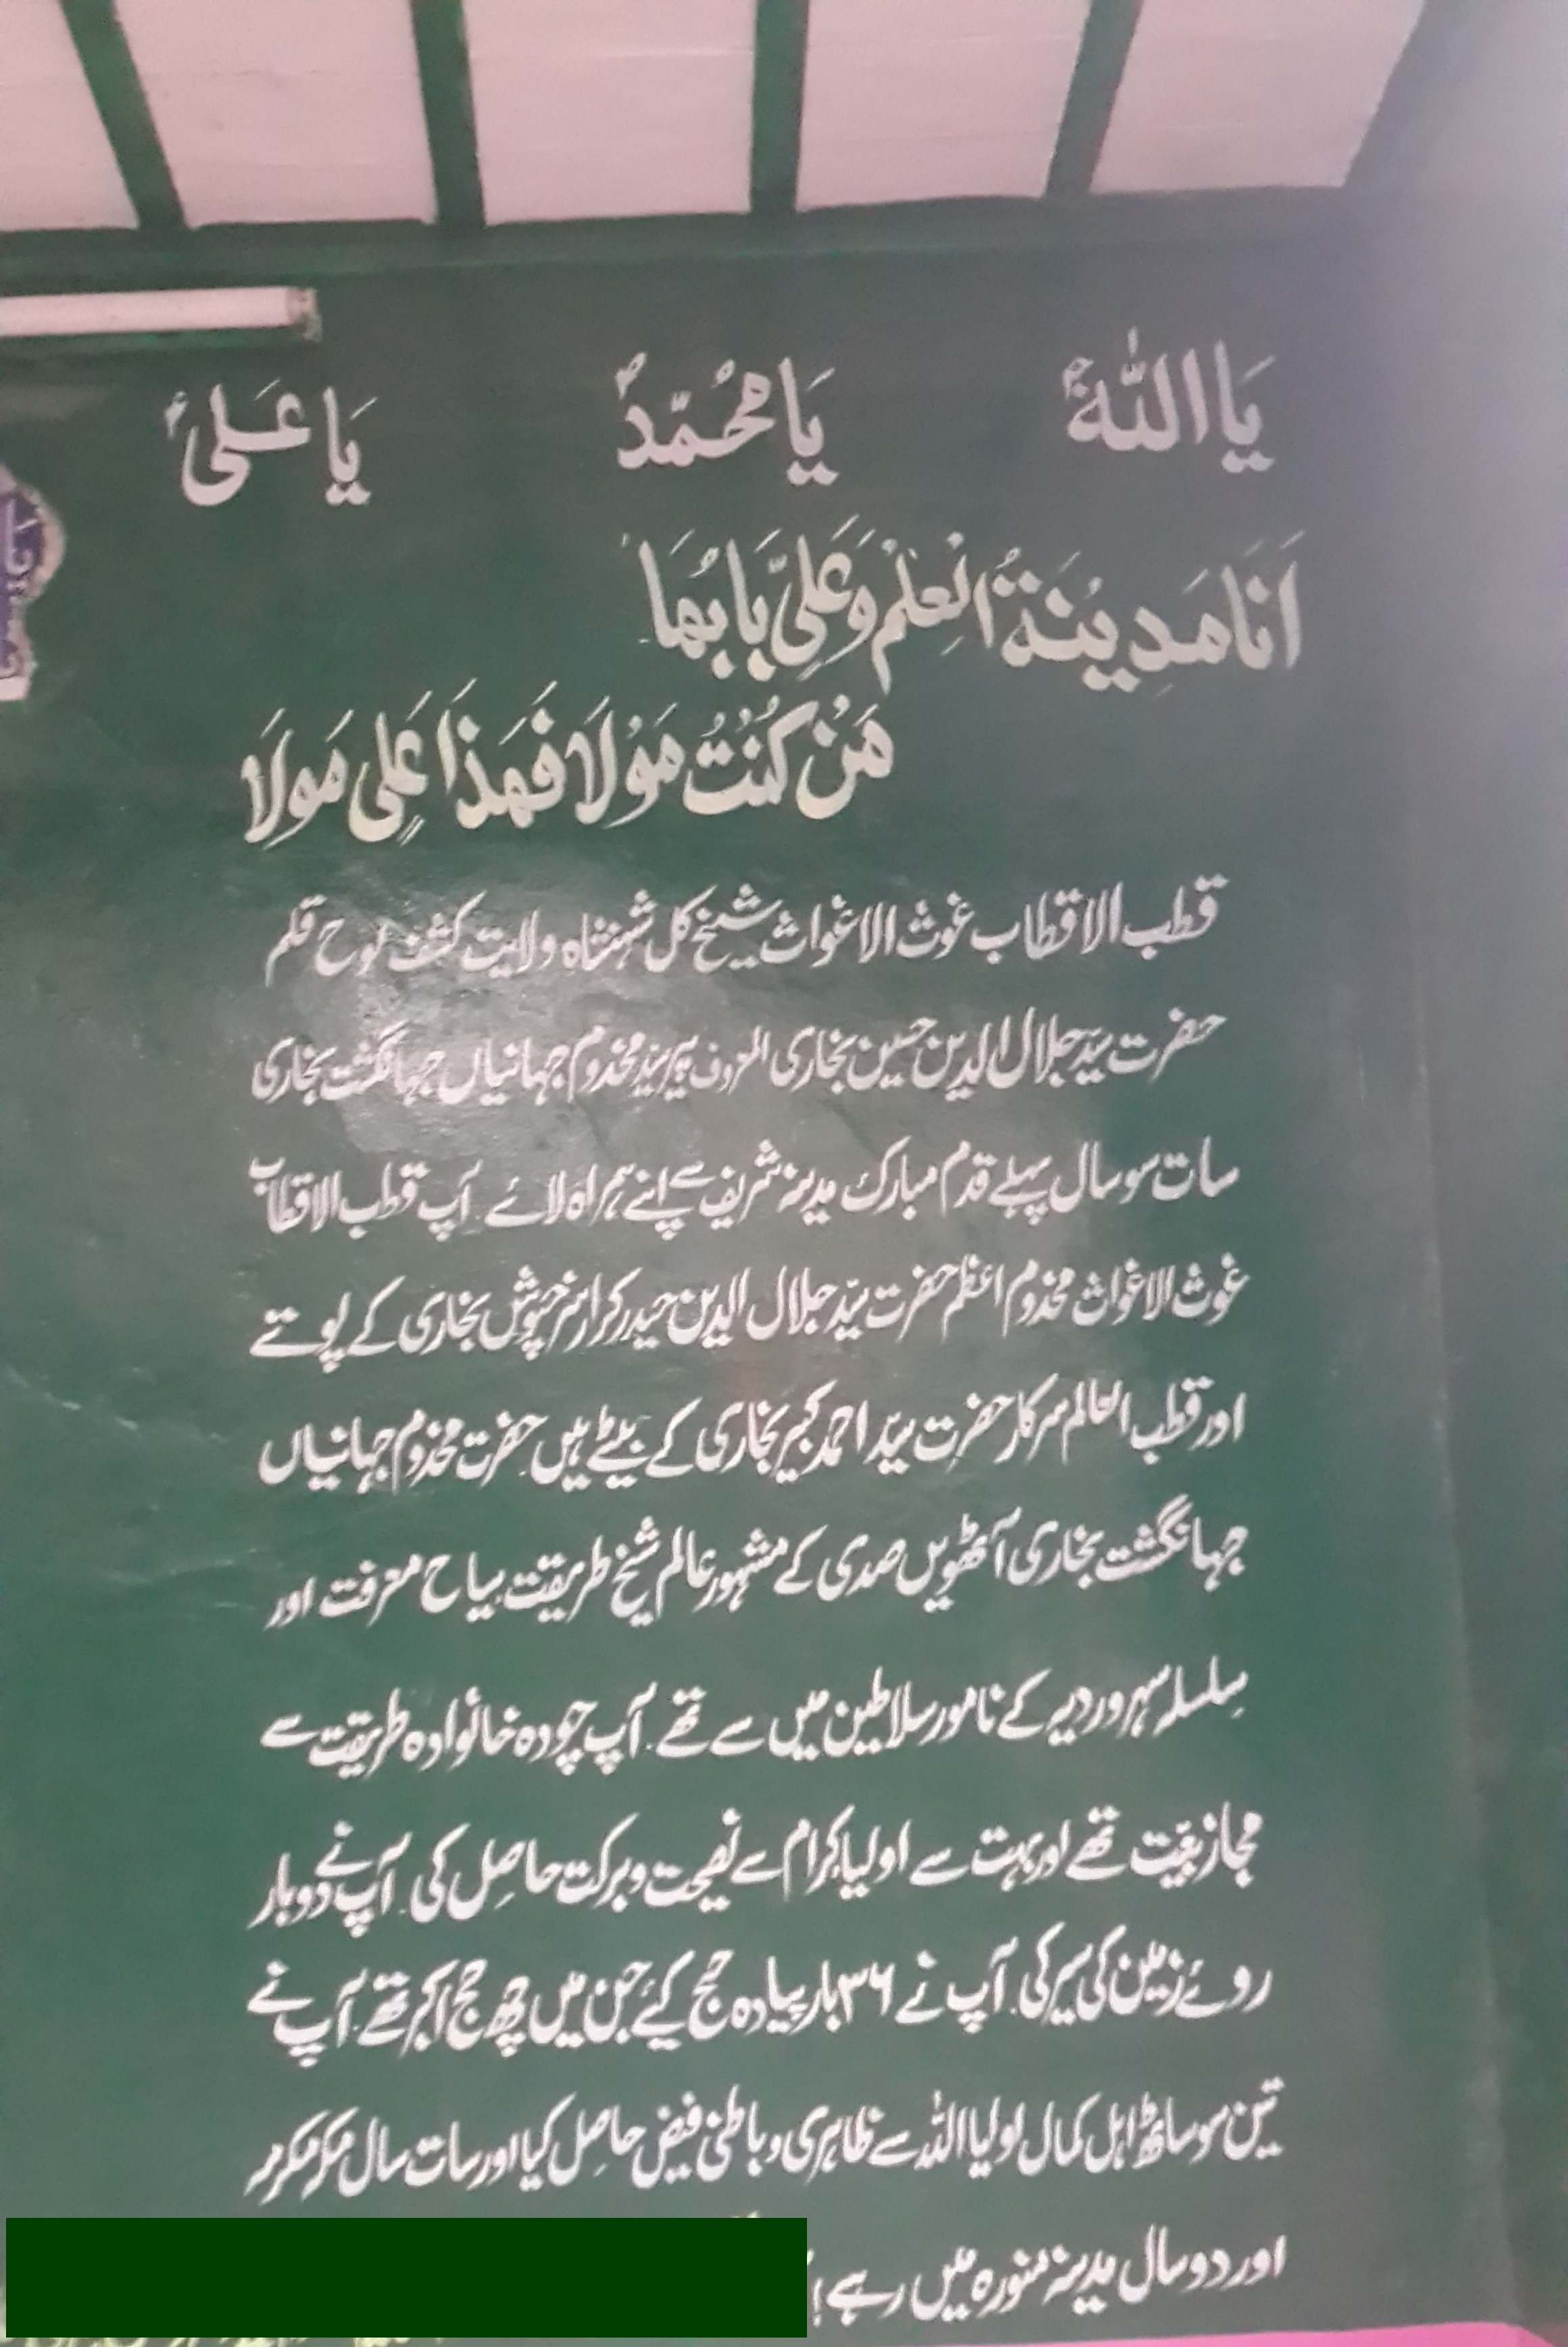 یَا اللہُ یَا مُحَمَّدُ یَا عَلیُ
اَنَا مَدِیْنَةُ الْعِلْمِ وَعَلِیٌّ بَابُهَا
مَنْ کُنْتُ مَوْلَا فَهَذَا عَلِی مَولَا
قطب الاقطاب غوث الاغواث شیخ کل شہنشاہ ولایت کشف لوح قلم
حضرت سیّد جلال الدین حسین بخاری المعروف پیر سیّد مخدوم جہانیاں جہانگشت بخاری
سات سو سال پہلے قدم مبارک مدینہ شریف سے اپنے ہمراہ لائے ۔ آپ قطب الاقطاب
غوث الاغواث مخدوم اعظم حضرت سیّد جلال الدین حیدر کرار سرخپوش بخاری کے پوتے
اور قطب العالم سرکار حضرت سیّد احمد کبیر بخاری کے بیٹے ہیں حضرت مخدوم جہانیاں
جہانگشت بخاری آٹھویں صدی کے مشہور عالم شیخ طریقت سیاح معرفت اور
سلسلہ سہروردیہ کے نامور سلاطین میں سے تھے ۔ آپ چودہ خانوادہ طریقت سے
مجاز بیعت تھے اور بہت سے اولیا کرام سے نصیحت و برکت حاصل کی ۔ آپ نے دوبار
روئے زمین کی سیر کی ۔ آپ نے ۳۶ بار پیادہ حج کیئے جن میں چھ حج اکبر تھے ۔ آپ نے
تین سو ساٹھ اہل کمال اولیا اللہ سے ظاہری و باطنی فیض حاصل کیا اور سات سال مکہ مکرمہ
اور دو سال مدینہ منورہ میں رہے !